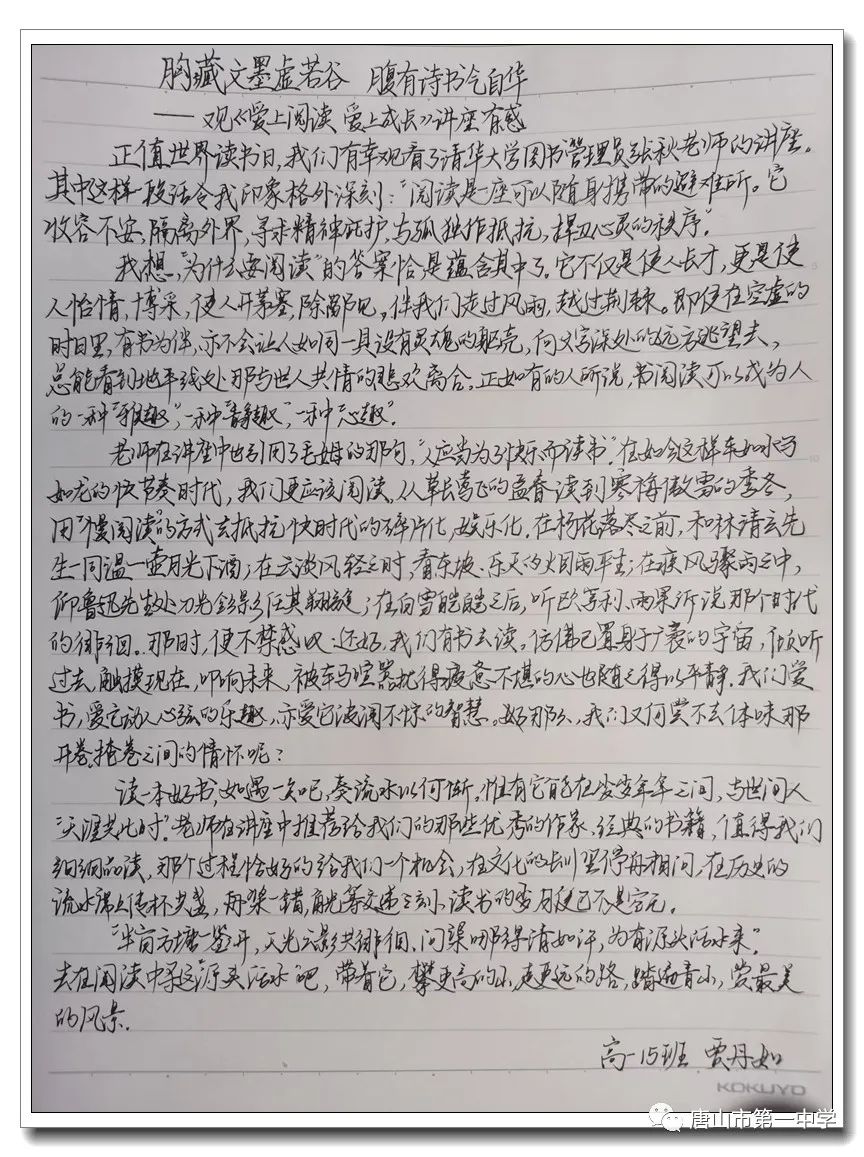 胸藏文墨虚若谷 腹有诗书气自华
——观《爱上阅读 爱上成长》讲座有感
正值世界读书日,我们有幸观看了清华大学图书管理员张秋老师的讲座。
其中这样一段话令我印象格外深刻:“阅读是一座可以随身携带的避难所。它
收容不安,隔离外界,寻求精神庇护,与孤独作抵抗,捍卫心灵的秩序”。
我想,“为什么要阅读”的答案恰是蕴含其中了。它不仅是使人长才,更是使
人怡情,博采,使人开茅塞,除鄙见,伴我们走过风雨,越过荆棘。即使在空虚的
时日里,有书为伴,亦不会让人如同一具没有灵魂的躯壳,向文字深处的远方眺望去,
总能看到地平线处那与世人共情的悲欢离合。正如有的人所说,书阅读可以成为人
的一种“雅趣”,一种“静趣”,一种“心趣”。
老师在讲座中也引用了毛姆的那句,“人应当为了快乐而读书”。在如今这样车如水马
如龙的快节奏时代,我们更应该阅读。从草长莺飞的孟春读到寒梅傲雪的季冬,
用“慢阅读”的方式去抵抗快时代的碎片化,娱乐化。在杨花落尽之前,和林清玄先
生一同温一壶月光下酒;在云淡风轻之时,看东坡、乐天的烟雨平生;在疾风骤雨之中,
仰鲁迅先生处刀光剑影任其翱旋;在白雪皑皑之后,听欧亨利、雨果诉说那个时代
的徘徊。那时,便不禁感叹:还好,我们有书去读,仿佛已置身于广袤的宇宙,倾听
过去,触摸现在,叩响未来,被车马喧嚣扰得疲惫不堪的心也随之得以平静。我们爱
书,爱它动人心弦的乐趣,亦爱它波澜不惊的智慧。好那么,我们又何尝不去体味那
开卷掩卷之间的情怀呢?
读一本好书,如遇一知己,奏流水以何惭,惟有它能在岁岁年年之间,与世间人
“天涯共此时”。老师在讲座中推荐给我们的那些优秀的作家、经典的书籍,值得我们
细细品读,那个过程恰好的给我们一个机会,在文化的长河里停舟相问,在历史的
流水席上传杯共盏,舟桨一错,觥筹交递之刻,读书的岁月便已不是空无。
“半亩方塘一鉴开,天光云影共徘徊。问渠那得清如许,为有源头活水来”。
去在阅读中寻这“源头活水”吧,带着它,攀更高的山,走更远的路,踏遍青山,赏最美
的风景。
高一15班 贾丹如
KOKUYO
唐山市第一中学